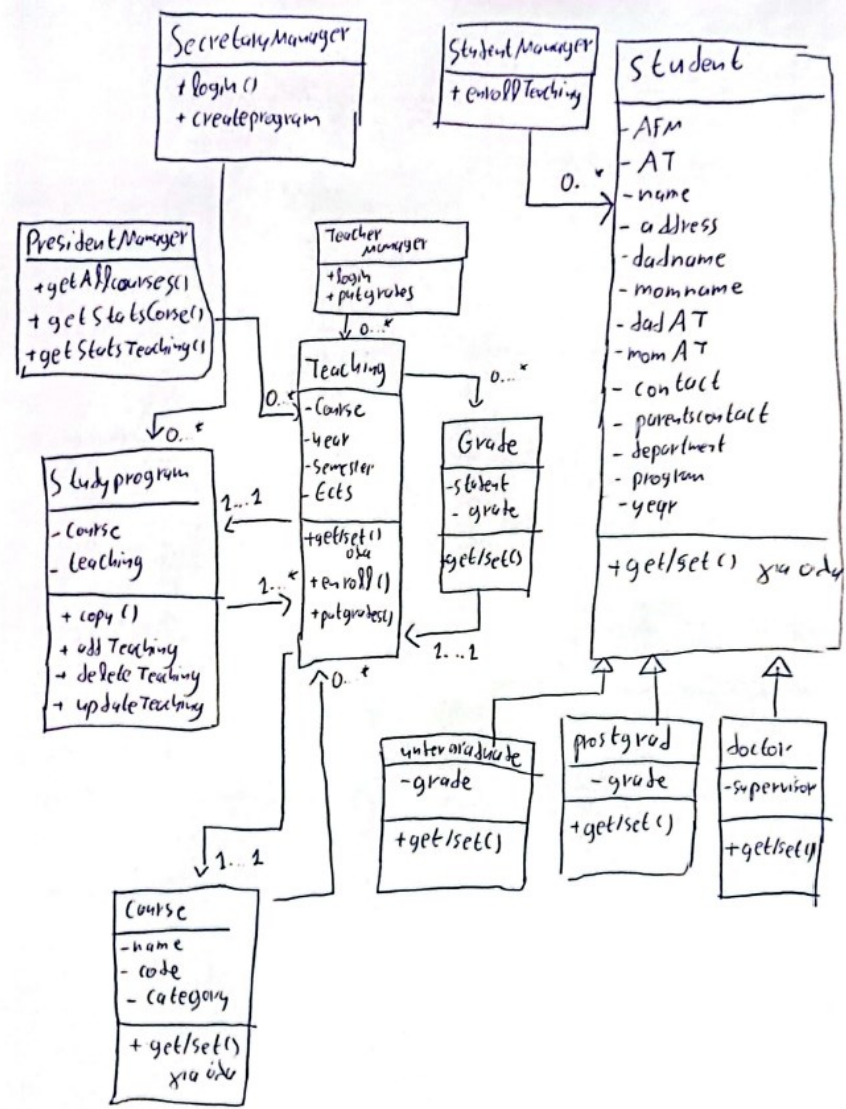 SecretaryManager
+ login()
+ createprogram
StudentManager
+ enrollTeaching
0..*
Student
- AFM
- AT
- name
- address
- dadname
- momname
- dadAT
- momAT
- contact
- parentscontact
- department
- program
- year
+ get/set() για όλα
PresidentManager
+getAllcourses()
+ getStatsCorse()
+getStatsTeaching()
Teacher
Manager
+login
+ putgrades
0...*
0...*
0..*
0...*
Teaching
- Course
- year
- Semester
- Ects
+get/set()
όλα
+ enroll()
+putgrades()
Grade
- student
- grade
+get/set()
1...1
Studyprogram
- Course
- teaching
+ copy()
+ addTeaching
+ deleteTeaching
+ updateTeaching
1...1
1...*
0...*
1...1
untergraduate
- grade
+get/set()
prostgrad
- grade
+get/set()
doctor
- supervisor
+get/set()
Course
- name
- code
- category
+ get/set()
για όλα